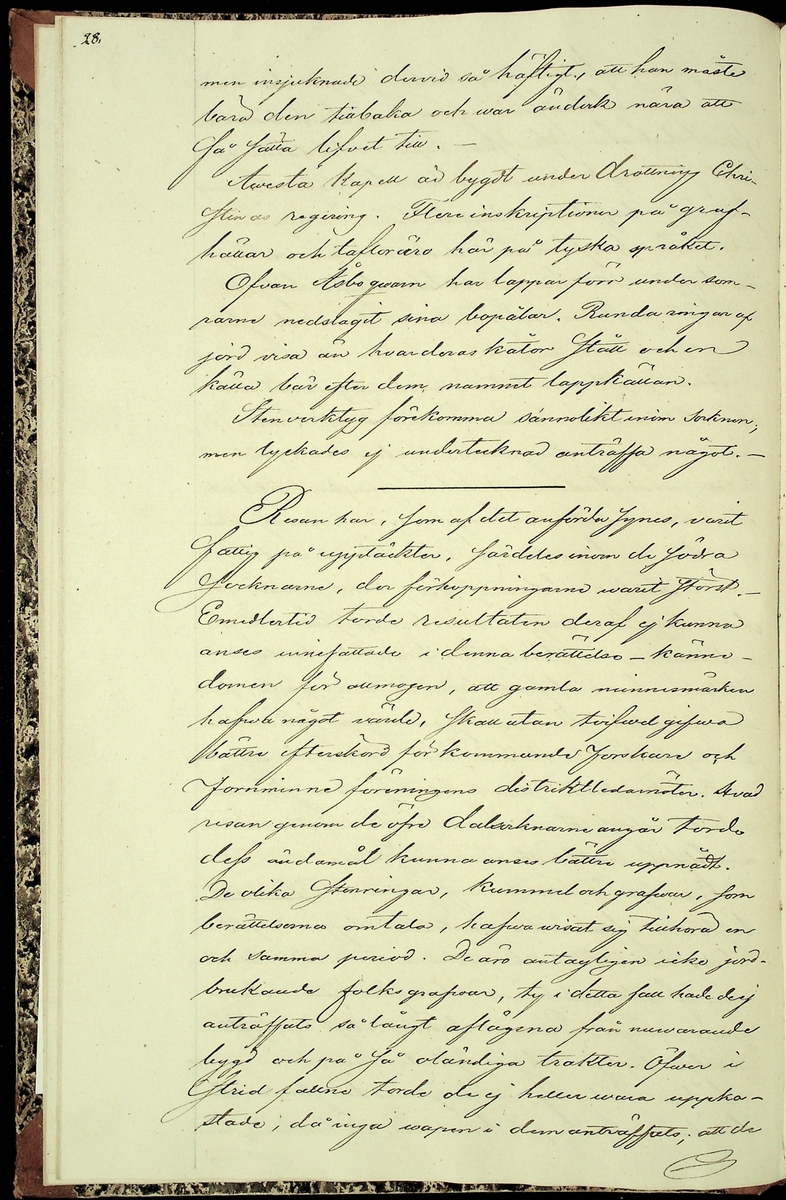 28.
men insjuknade dervid så häftigt, att han måste
bära den tillbaka och war ändock nära att
få sätta lifvet till. —
Awesta kapell är bygdt under drottning Chri-
stinas regering. Flere inskriptioner på graf-
hällar och taflor äro här på tyska språket.
Ofvan Åsbogwarn har lappar förr under som-
rarne nedslagit sina bopålar. Runda ringar af
jord visa än hvar deras kåtor stått och en
källa bär efter dem namnet lappkällan.
Stenverktyg förekomma sannolikt inom socknen;
men lyckades ej undertecknad anträffa något. —
Resan har, som af det anförda synes, varit
fattig på upptäckter, särdeles inom de södra
socknarne, der förhoppningarne warit störst. —
Emedlertid torde resultaten deraf ej kunna
anses innefattade i denna berättelse — känne-
domen för allmogen, att gamla minnesmärken
hafwa något värde, skall utan tvifwel gifwa
bättre efterskörd för kommande forskare och
fornminne föreningens distriktledamöter. Hvad
resan genom de öfre dalsocknarne angår torde
dess ändamål kunna anses bättre uppnådt.
De olika stenringar, kummel och grafwar, som
berättelserna omtala, hafwa wisat sig tillhöra en
och samma period. De äro antagligen icke jord-
brukande folks grafwar, ty i detta fall hade de ej
anträffats så långt aflägsna från nuwarande
bygd och på så oländiga trakter. Öfwer i
strid fallne torde de ej heller wara uppka-
stade, då inga wapen i dem anträffats; att de